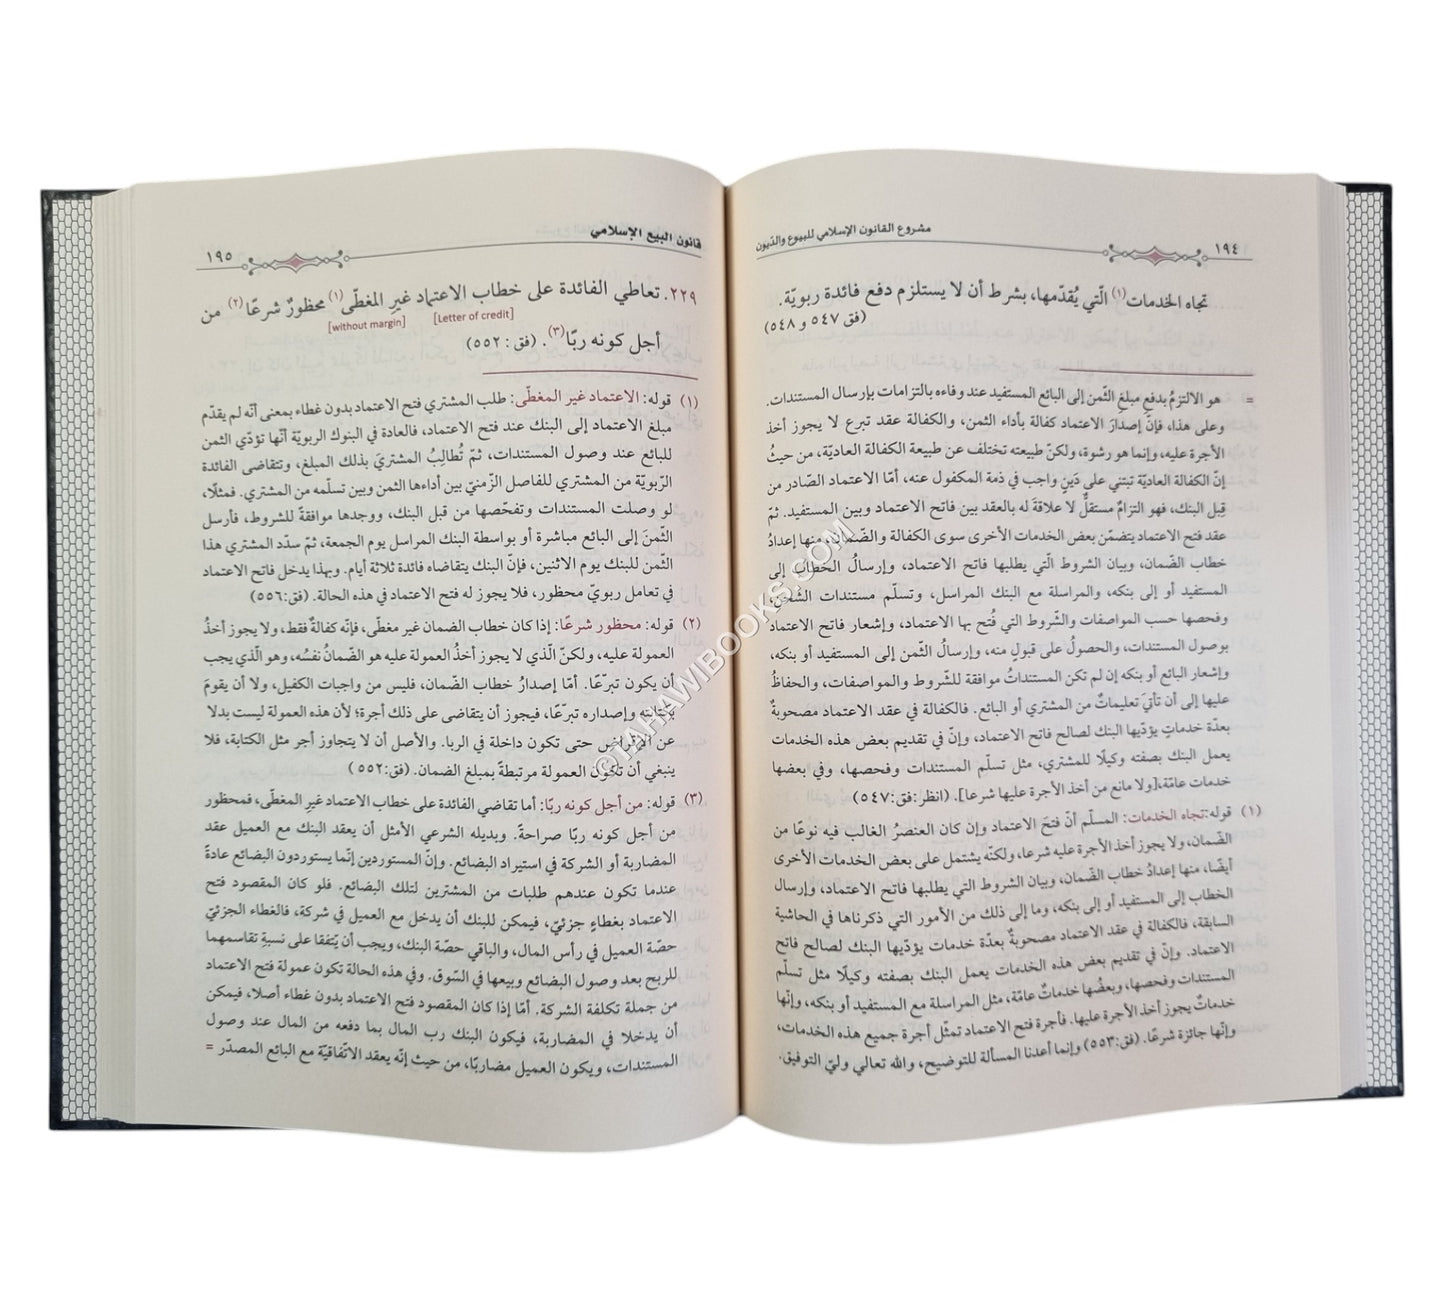 ١٩٤
مشروع القانون الإسلامي للبيوع والديون
تجاه الخدمات(١) الّتي يُقدّمها، بشرط أن لا يستلزم دفع فائدة ربويّة.
(فق ٥٤٧ و ٥٤٨)
= هو الالتزمُ بدفعِ مبلغِ الثّمن إلى البائع المستفيد عند وفاءه بالتزامات بإرسال المستندات.
وعلى هذا، فإنّ إصدارَ الاعتماد كفالة بأداء الثمن، والكفالة عقد تبرع لا يجوز أخذ
الأجرة عليه، وإنما هو رشوة، ولكنّ طبيعته تختلف عن طبيعة الكفالة العاديّة، من حيثُ
إنّ الكفالة العاديّة تبتني على دَينٍ واجب في ذمة المكفول عنه، أمّا الاعتماد الصّادر من
قِبل البنك، فهو التزامٌ مستقلٌّ لا علاقةَ له بالعقد بين فاتح الاعتماد وبين المستفيد. ثمّ
عقد فتح الاعتماد يتضمّن بعض الخدمات الأخرى سوى الكفالة والضّمان، منها إعدادُ
خطاب الضّمان، وبيان الشروط الّتي يطلبها فاتح الاعتماد، وإرسالُ الخطاب إلى
المستفيد أو إلى بنكه، والمراسلة مع البنك المراسل، وتسلّم مستندات الشّحن،
وفحصها حسب المواصفات والشّروط التي فُتح بها الاعتماد، وإشعار فاتح الاعتماد
بوصول المستندات، والحصول على قبولٍ منه، وإرسالُ الثّمن إلى المستفيد أو بنكه،
وإشعار البائع أو بنكه إن لم تكن المستنداتُ موافقة للشّروط والمواصفات، والحفاظُ
عليها إلى أن تأتيَ تعليماتٌ من المشتري أو البائع. فالكفالة في عقد الاعتماد مصحوبةٌ
بعدّة خدماتٍ يؤدّيها البنك لصالح فاتح الاعتماد، وإنّ في تقديم بعض هذه الخدمات
يعمل البنك بصفته وكيلًا للمشتري، مثل تسلّم المستندات وفحصها، وفي بعضها
خدمات عامّة،[ولا مانع من أخذ الأجرة عليها شرعا]. (انظر:فق:٥٤٧)
(١) قوله:تجاه الخدمات: المسلّم أنّ فتحَ الاعتماد وإن كان العنصرُ الغالب فيه نوعًا من
الضّمان، ولا يجوز أخذ الأجرة عليه شرعا، ولكنّه يشتمل على بعض الخدمات الأخرى
أيضًا، منها إعدادُ خطاب الضّمان، وبيان الشروط التي يطلبها فاتح الاعتماد، وإرسال
الخطاب إلى المستفيد أو إلى بنكه، وما إلى ذلك من الأمور التي ذكرناها في الحاشية
السابقة، فالكفالة في عقد الاعتماد مصحوبةٌ بعدّة خدمات يؤدّيها البنك لصالح فاتح
الاعتماد. وإنّ في تقديم بعض هذه الخدمات يعمل البنك بصفته وكيلًا مثل تسلّم
المستندات وفحصها، وبعضُها خدماتٌ عامّة، مثل المراسلة مع المستفيد أو بنكه، وإنّها
خدماتٌ يجوز أخذ الأجرة عليها. فأجرة فتح الاعتماد تمثّل أجرة جميع هذه الخدمات،
وإنّها جائزة شرعًا. (فق:٥٥٣) وإنما أعدنا المسألة للتوضيح، والله تعالي وليّ التوفيق.
قانون البيع الإسلامي
١٩٥
٢٢٩. تعاطي الفائدة على خطاب الاعتماد غيرِ المغطّى(١) محظورٌ شرعًا(٢) من
[Letter of credit] [without margin]
أجل كونه ربًا(٣). (فق: ٥٥٢)
(١) قوله: الاعتماد غير المغطّى: طلب المشتري فتح الاعتماد بدون غطاء بمعنى أنّه لم يقدّم
مبلغ الاعتماد إلى البنك عند فتح الاعتماد، فالعادة في البنوك الربويّة أنّها تؤدّي الثمن
للبائع عند وصول المستندات، ثمّ تُطالِبُ المشتريَ بذلك المبلغ، وتتقاضى الفائدة
الرّبويّة من المشتري للفاصل الزّمنيّ بين أداءها الثمن وبين تسلّمه من المشتري. فمثلًا،
لو وصلت المستندات وتفحّصها من قبل البنك، ووجدها موافقةً للشروط، فأرسل
الثّمنَ إلى البائع مباشرة أو بواسطة البنك المراسل يوم الجمعة، ثمّ سدّد المشتري هذا
الثّمن للبنك يوم الاثنين، فإنّ البنك يتقاضاه فائدة ثلاثة أيام. وبهذا يدخل فاتح الاعتماد
في تعامل ربويّ محظور، فلا يجوز له فتح الاعتماد في هذه الحالة. (فق:٥٥٦)
(٢) قوله: محظور شرعًا: إذا كان خطاب الضمان غير مغطّى، فإنّه كفالةٌ فقط، ولا يجوز أخذُ
العمولة عليه، ولكنّ الّذي لا يجوز أخذُ العمولة عليه هو الضّمانُ نفسُه، وهو الّذي يجب
أن يكون تبرّعًا. أمّا إصدارُ خطاب الضّمان، فليس من واجبات الكفيل، ولا أن يقومَ
بكتابته وإصداره تبرّعًا، فيجوز أن يتقاضى على ذلك أجرة؛ لأن هذه العمولة ليست بدلا
عن الإقراض حتى تكون داخلة في الربا. والأصل أن لا يتجاوز أجر مثل الكتابة، فلا
ينبغي أن تكون العمولة مرتبطةً بمبلغ الضمان. (فق:٥٥٢)
(٣) قوله: من أجل كونه ربًا: أما تقاضي الفائدة على خطاب الاعتماد غيرِ المغطّى، فمحظور
من أجل كونه ربًا صراحةً. وبديله الشرعي الأمثل أن يعقد البنك مع العميل عقد
المضاربة أو الشركة في استيراد البضائع. وإنّ المستوردين إنّما يستوردون البضائع عادةً
عندما تكون عندهم طلبات من المشترين لتلك البضائع. فلو كان المقصود فتح
الاعتماد بغطاءٍ جزئيّ، فيمكن للبنك أن يدخل مع العميل في شركة، فالغطاء الجزئيّ
حصّة العميل في رأس المال، والباقي حصّة البنك، ويجب أن يتّفقا على نسبةِ تقاسمهما
للربح بعد وصول البضائع وبيعها في السّوق. وفي هذه الحالة تكون عمولة فتح الاعتماد
من جملة تكلفة الشركة. أمّا إذا كان المقصود فتح الاعتماد بدون غطاء أصلا، فيمكن
أن يدخلا في المضاربة، فيكون البنك رب المال بما دفعه من المال عند وصول
المستندات، ويكون العميل مضاربًا، من حيث إنّه يعقد الاتّفاقيّة مع البائع المصدّر =
©TAHAWIBOOKS.COM